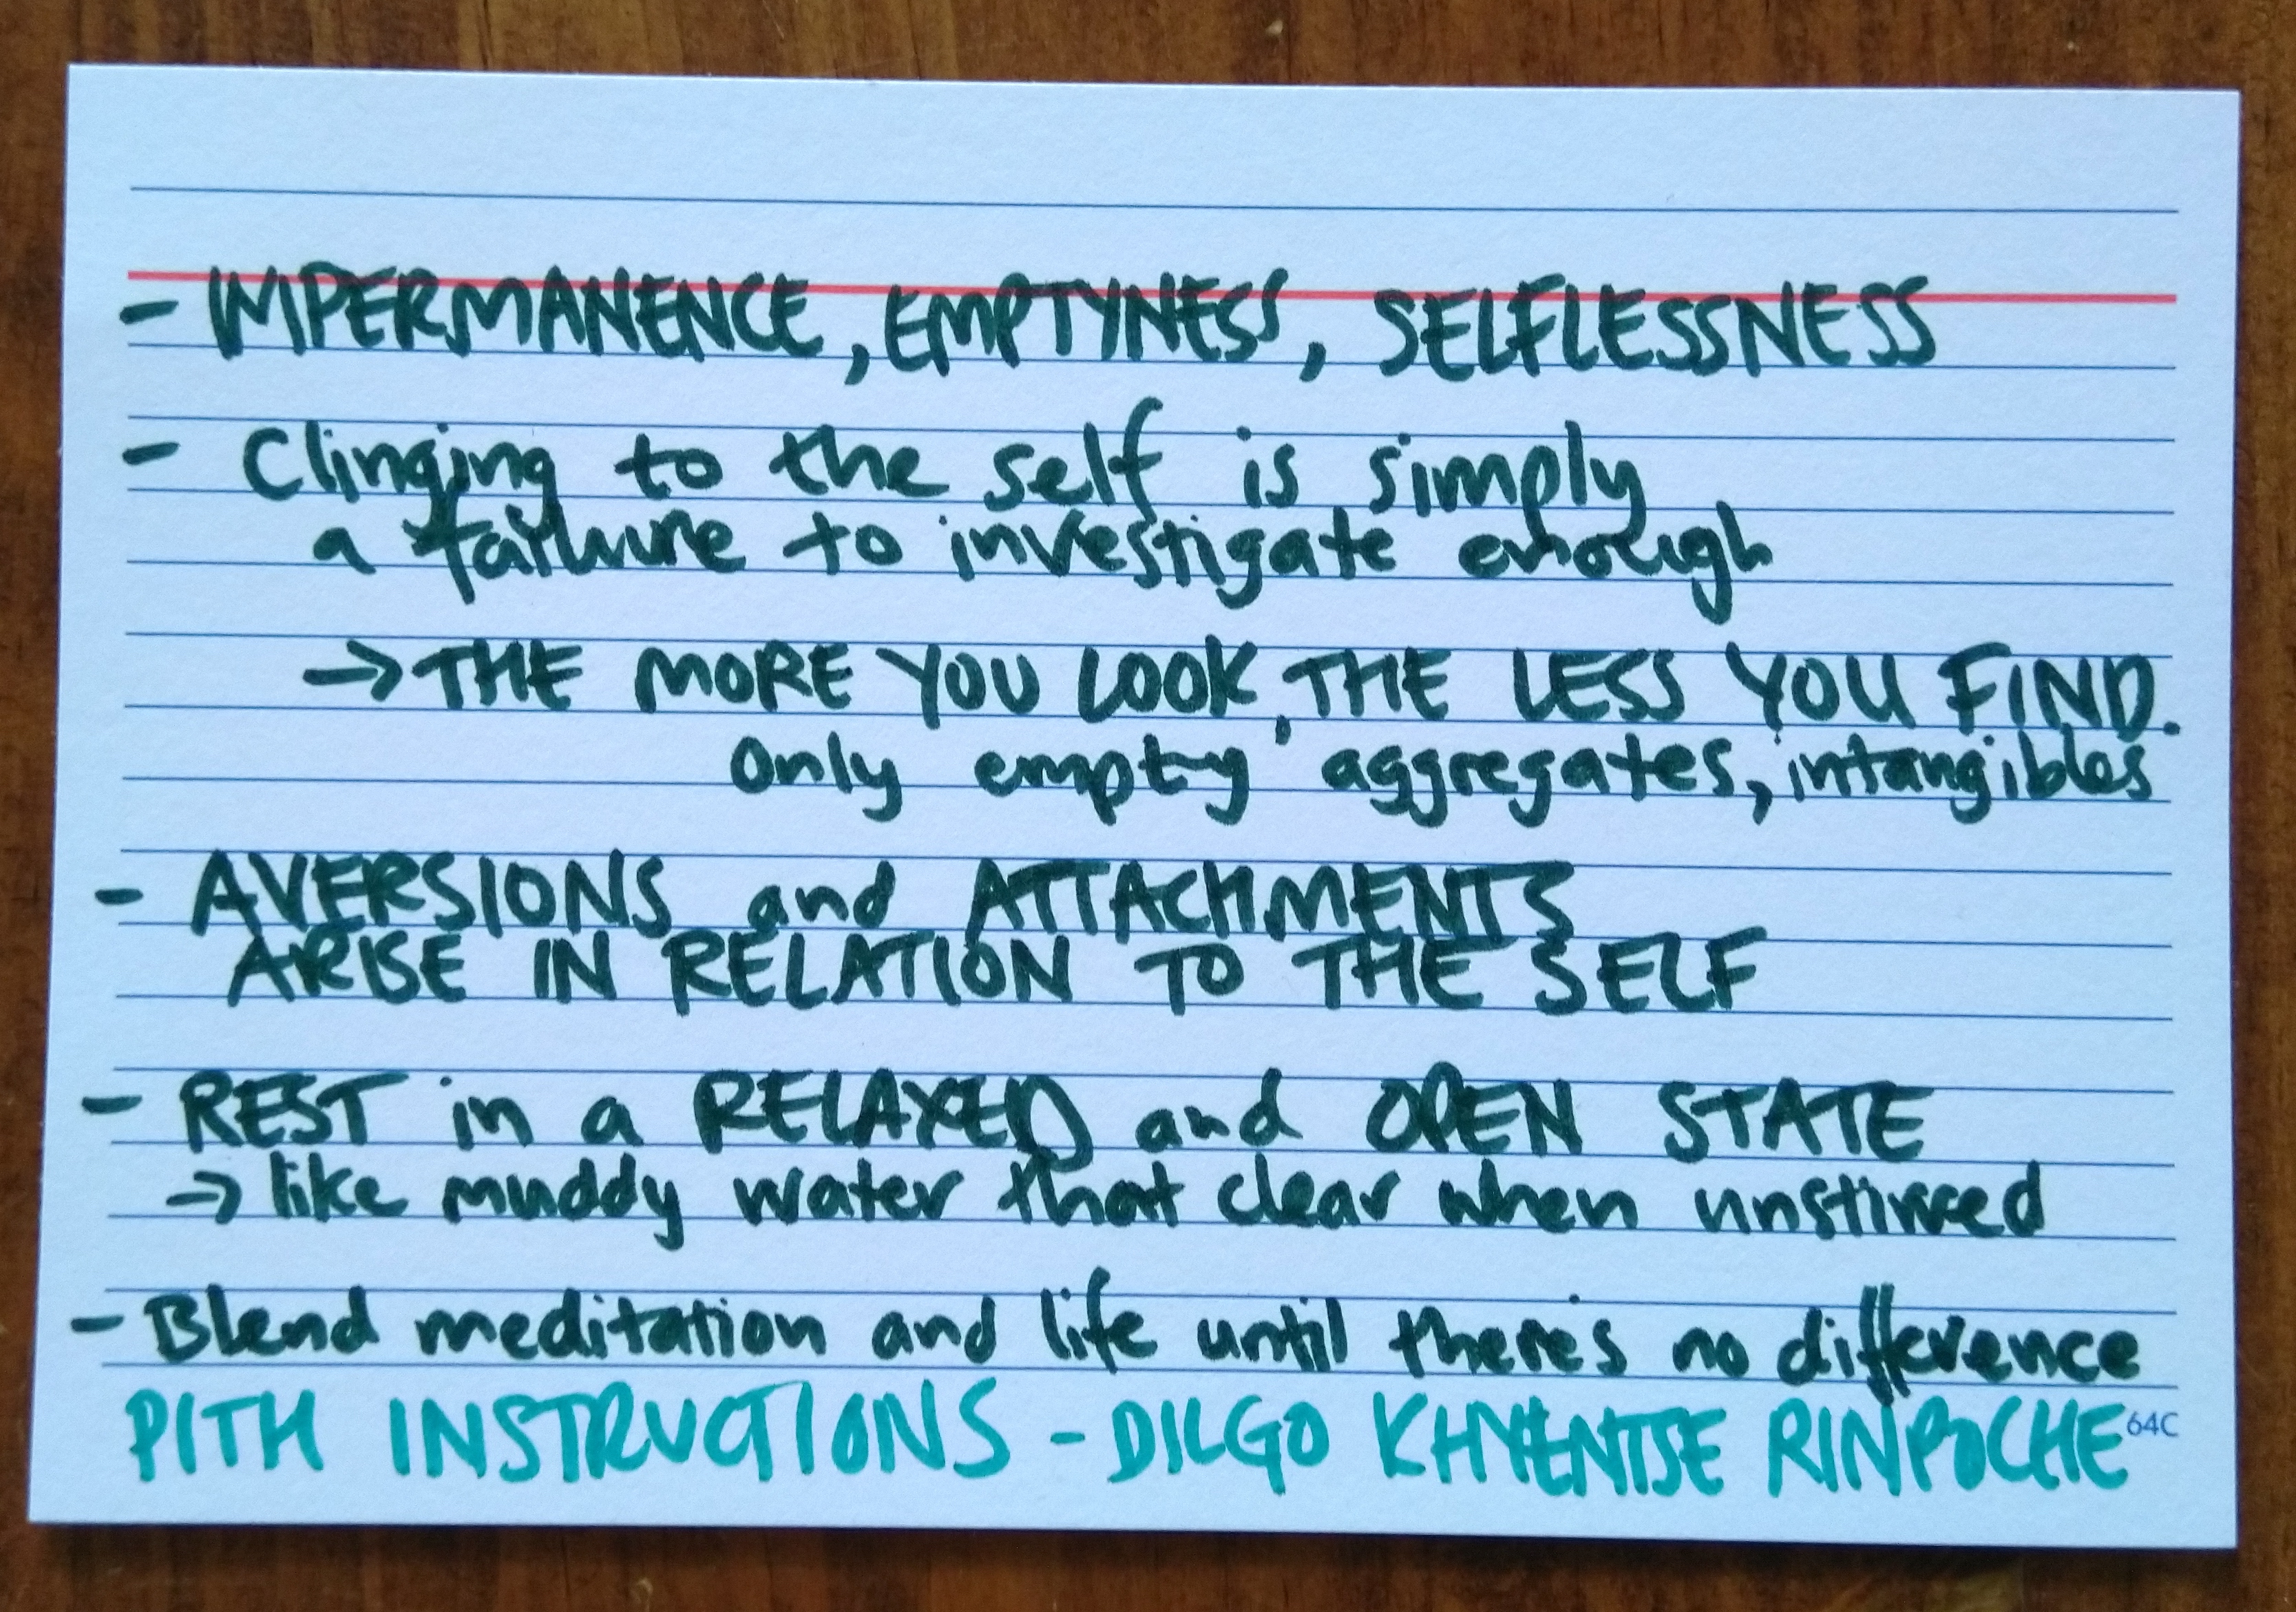 - IMPERMANENCE, EMPTYNESS, SELFLESSNESS
- Clinging to the self is simply
a failure to investigate enough
→ THE MORE YOU LOOK, THE LESS YOU FIND.
Only empty aggregates, intangibles
- AVERSIONS and ATTACHMENTS
ARISE IN RELATION TO THE SELF
- REST in a RELAXED and OPEN STATE
→ like muddy water that clear when unstirred
- Blend meditation and life until there's no difference
PITH INSTRUCTIONS - DILGO KHYENTSE RINPOCHE 64C